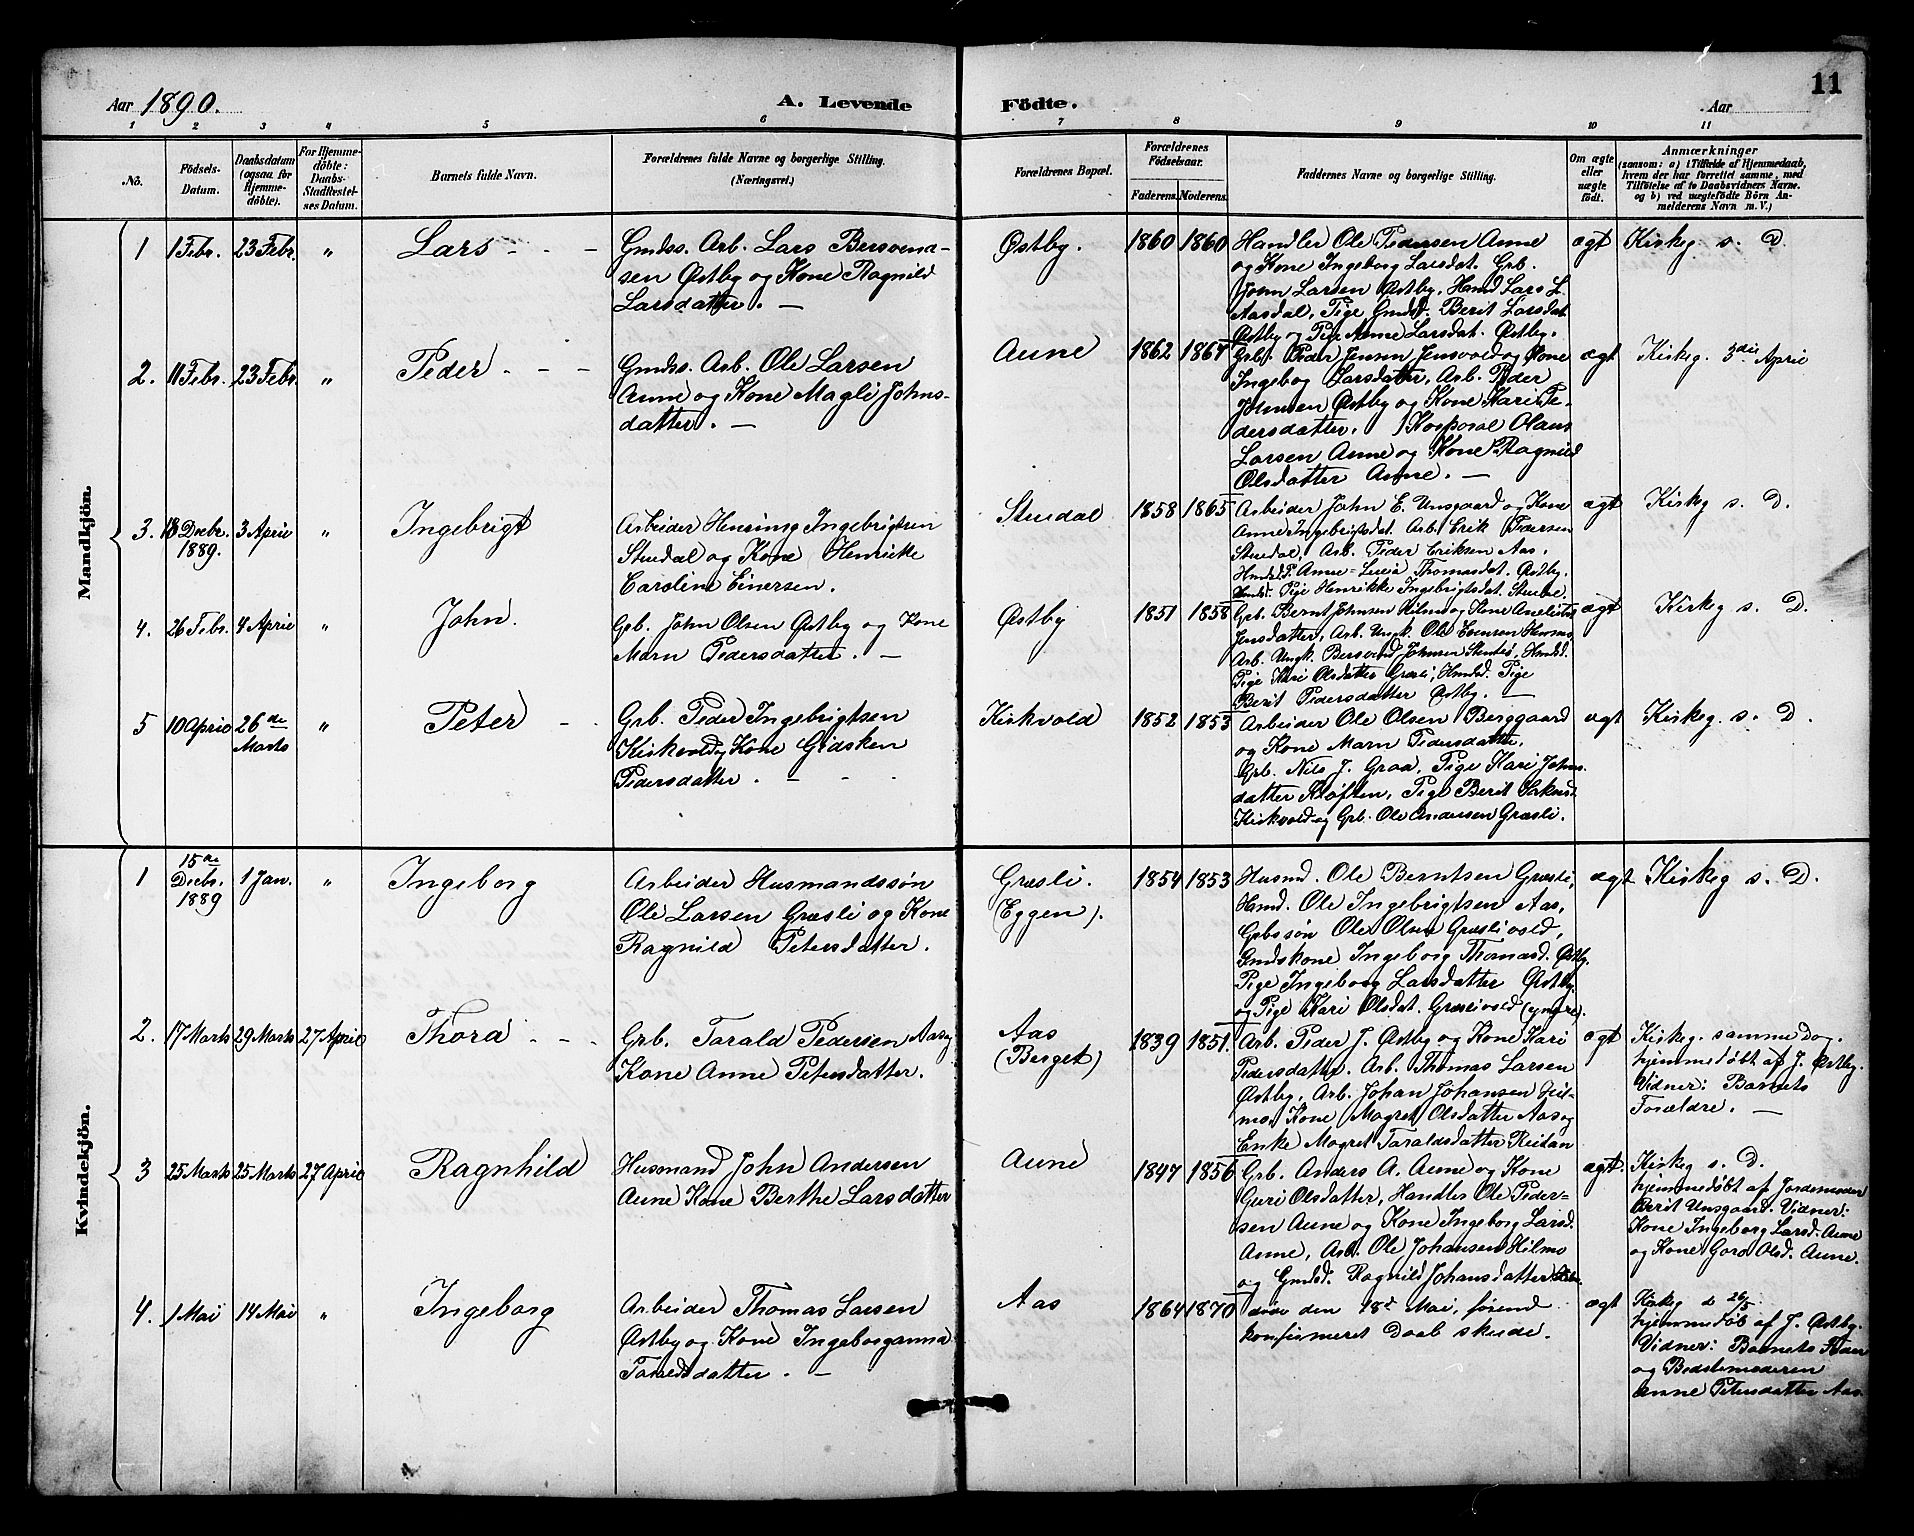 Aar 1890.
A. Levende Födte.
Aar
11
1 2 3 4 5 6 7 8 9 10 11
No.
Födsels-
Datum.
Daabsdatum
(ogsaa for
Hjemme-
döbte).
For Hjemme-
döbte:
Daabs-
Stadfæstel-
ses Datum.
Barnets fulde Navn.
Forældrenes fulde Navne og borgerlige Stilling.
(Næringsvei.)
Forældrenes Bopæl.
Forældrenes
Födselsaar.
Faderens. Moderens.
Faddernes Navne og borgerlige Stilling.
Om ægte
eller
uægte
födt.
Anmærkninger
(saasom: a) i Tilfælde af Hjemmedaab,
hvem der har forrettet samme, med
Tilföielse af to Daabsvidners Navne.
og b) ved uægtefödte Börn An-
melderens Navn m. V.)
Mandkjön.
1 1 Febr. 23 Febr. " Lars - - -
Gmdss. Arb. Lars Bersvend-
sen Østby og Kone Ragnild
Larsdatter. —
Østby. 1860 1860
Handler Ole Pedersen Aune
og Kone Ingeborg Larsdat. Grb.
John Larsen Østby, Hamd Lars L.
Aasdal, Pige Gmdsd. Berit Larsdat.
Østby og Pige Anne Larsdat. Østby.
ægt Kirkeg. s. D.
2. 11 Febr. 23 Febr. " Peder - - -
Gmdss. Arb. Ole Larsen
Aune og Kone Magli Johns-
datter. —
Aune 1862 1867
Grb. Peder Jensen Jensvold og Kone
Ingebog Larsdatter, Arb. Peder
Johnsen Østby og Kone Kari Pe-
dersdatter, Korporal Olaus
Larsen Aune og Kone Ragnild
Olsdatter Aune. —
ægt Kirkeg. 3die April
3. 18 Decbr. 1889. 3 April " Ingebrigt
Arbeider Henning Ingebrigtsen
Stuedal og Kone Henrikke
Caroline Einersen.
Stuedal 1858 1865
Arbeider John E. Unsgaard og Kone
Anne Ingebrigtsdat. Arb. Erik Pedersen
Stuedal, Arb. Peder Eriksen Aas,
Anne Thomasdat. Østby.
Pige Henrikke Ingebrigtsdat. Stuedal.
ægt Kirkeg s. D.
4. 26 Febr. 4 April " John.
Grb. John Olsen Østby og Kone
Marn Pedersdatter. —
Østby 1851 1858
Grb. Bernt Johnsen Hilmo og Kone
Jensdatter, Arb. Ungk. Ole Hilmo,
Arb. Ungk. Bersvend Johnsen Hamsd.
Pige Kari Olsdatter Græsli, Husmd. Pige
Berit Pedersdatter Østby. —
ægt Kirkeg s. D.
5 10 April 26de Marts " Peter - -
Grb. Peder Ingebrigtsen
Kirkvold og Kone Gidsken
Pedersdatter. - - -
Kirkvold 1852 1853
Arbeider Ole Olsen Berggaard
og Kone Marn Pedersdatter,
Grb. Nils J. Graa, Pige Kari Johns-
datter Kløften, Pige Berit
Kirkvold og Grb. Ole Andersen Græsli.
ægt Kirkeg. s. D.
Kvindekjön.
1 15de Decbr. 1889 1 Jan. " Ingeborg
Arbeider Husmandssön
Ole Larsen Græsli og Kone
Ragnild Petersdatter.
Græsli.
(Eggen).
1854 1853
Husmd. Ole Berntsen Græsli,
Hamd. Ole Ingebrigtsen Aas,
Grbssön Ole Olsen Græslivold,
Gmdskone Ingeborg Thomasd. Østby.
Pige Ingeborg Larsdatter Østby
og Pige Kari Olsdat. Græslivold (yngre).
ægt Kirkeg s. D.
2. 17 Marts 29 Marts 27 April Thora - - -
Grb. Tarald Pedersen Aas og
Kone Anne Petersdatter.
Aas
(Berget)
1839 1851.
Arb. Peder J. Østby og Kone Kari
Pedersdatter. Arb. Thomas Larsen
Østby, Arb. Johan Johansen Hil-
mo, Kone Magret Olsdatter Aas og
Enke Magret Taraldsdatter Reitan
ægt Kirkeg. samme Dag.
hjemmedøbt af J. Østby.
Vidner: Barnets
Forældre. —
3 25 Marts 25 Marts 27 April Ragnhild
Husmand John Andersen
Aune Kone Berthe Larsdatter
Aune 1847 1856
Grb. Anders A. Aune og Kone
Guri Olsdatter, Handler Ole Peder-
sen Aune og Kone Ingeborg Larsd.
Aune, Arb. Ole Johansen Hilmo
og Gmdsd. Ragnild Johansdatter
ægt. Kirkeg s. D.
hjemmedøbt af Jordemoder
Berit Unsgaard. Vidner:
Kone Ingeborg Larsd. Aune
og Kone Goro Olsd. Aune.
4. 1 Mai 14 Mai " Ingeborg
Arbeider Thomas Larsen
Østby og Kone Ingeborganna
Taraldsdatter. —
Aas 1864 1870
døde den 18de Mai, førend
konfirmeret Daab skede.
ægt Kirkeg d 26/5
hjemmedøb af J. Østby.
Vidner: Barnets Fader
og Bedstemoderen
Anne Petersdatter Aas